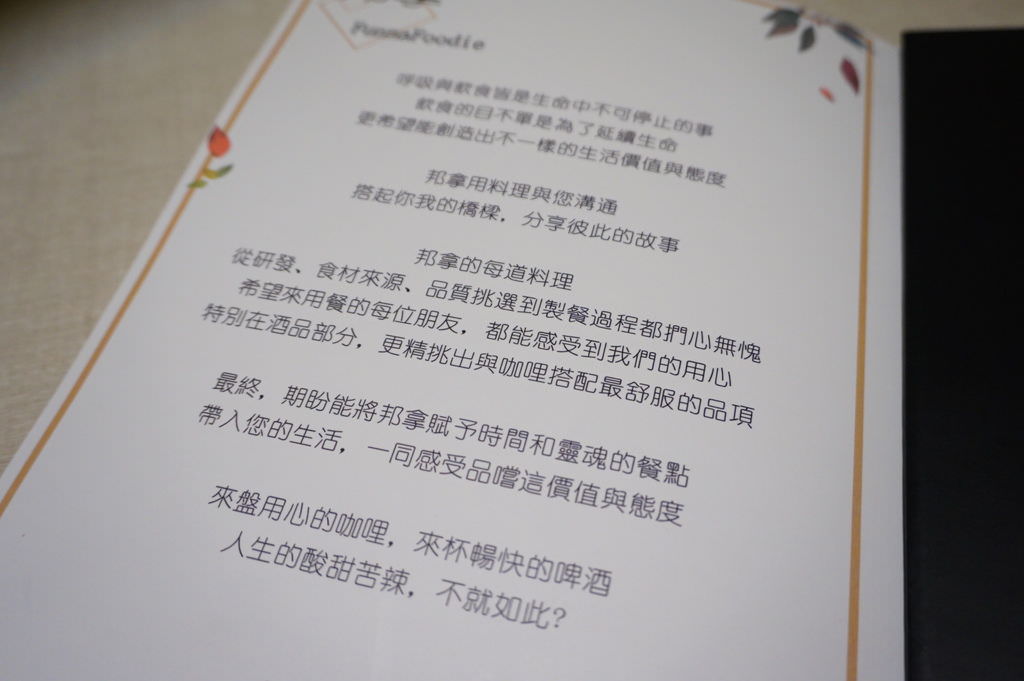 呼吸與飲食皆是生命中不可停止的事
飲食的目不單是為了延續生命
更希望能創造出不一樣的生活價值與態度
邦拿用料理與您溝通
搭起你我的橋樑，分享彼此的故事
邦拿的每道料理
從研發、食材來源、品質挑選到製餐過程都捫心無愧
希望來用餐的每位朋友，都能感受到我們的用心
特別在酒品部分，更精挑出與咖哩搭配最舒服的品項
最終，期盼能將邦拿賦予時間和靈魂的餐點
帶入您的生活，一同感受品嚐這價值與態度
來盤用心的咖哩，來杯暢快的啤酒
人生的酸甜苦辣，不就如此?